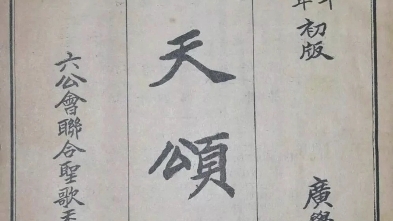 年初版
廣學
天頌
六公會聯合聖歌委